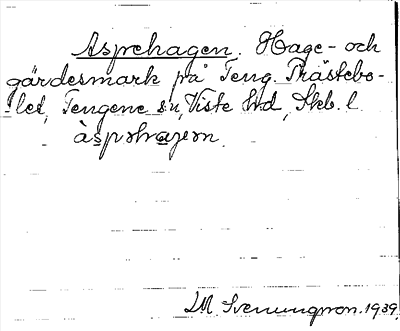 Asprehagen. Hage- och
gärdesmark på Teng. Prästebo-
let, Tengene sn, Viste hd, Skb. l.
àsprhajern.
IM. Svenungson. 1939.